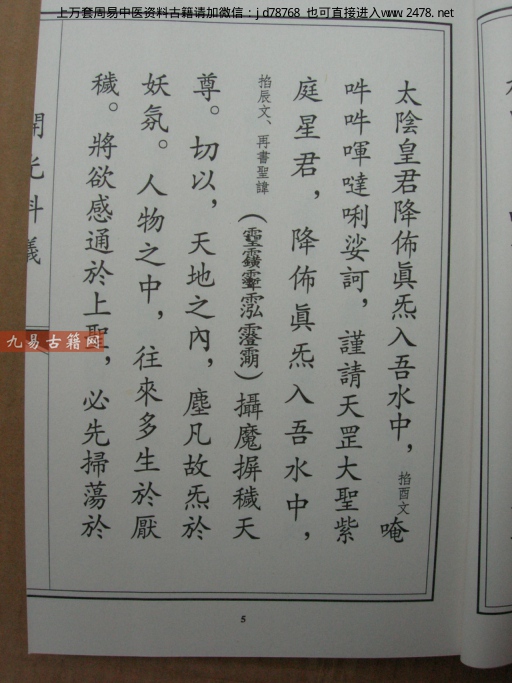 上万套周易中医资料古籍请加微信：jd78768 也可直接进入www.2478.net
太陰皇君降佈眞炁入吾水中，掐酉文唵
吽吽㖶噠唎娑訶，謹請天罡大聖紫
庭星君，降佈眞炁入吾水中，
掐辰文、再書聖諱（）攝魔摒穢天
尊。切以，天地之內，塵凡故炁於
妖氛。人物之中，往來多生於厭
穢。將欲感通於上聖，必先掃蕩於
開光科儀
九易古籍网
5